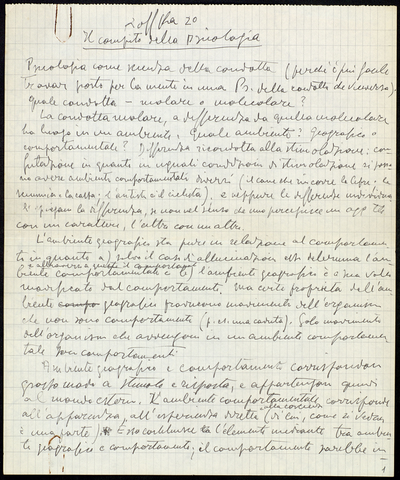 Koffka 20
Il compito della psicologia
Psicologia come scienza della condotta (perché è più facile
trovar posto per la mente in una Ps. della condotta che viceversa).
Quale condotta – molare o molecolare?
La condotta molare, a differenza da quella molecolare
ha luogo in un ambiente. Quale ambiente? Geografico o
comportamentale? Differenza ricondotta alla stimolazione: con-
futazione in quanto in uguali condizioni di stimolazione si posso-
no avere ambienti comportamentali diversi (il cane che rincorre la lepre, la
scimmia e la cassa, l'artista e il ciclista), e neppure le differenze individuali
spiegan la differenza, se non nel senso che uno percepisce un oggetto
con un carattere, l'altro con un altro.
L'ambiente geografico sta pure in relazione al comportamen-
to in quanto a) salvo il caso di allucinazioni esso determina l'am-
biente comportamentale e b) l'ambiente geografico è a sua volta
modificato dal comportamento. Ma certe proprietà dell'am-
biente geografico producono movimenti dell'organismo
che non sono comportamento (p. es. una caduta). Solo movimenti
dell'organismo che avvengono in un ambiente comportamen-
tale son comportamenti.
Ambiente geografico e comportamento corrispondono
grosso modo a stimolo e risposta, e appartengon quindi
al mondo esterno. L'ambiente comportamentale corrisponde
all'apparenza, all'esperienza diretta, alla coscienza (di cui, come si vedrà,
è una parte). Esso costituisce l'elemento mediante tra ambien-
te geografico e comportamento; il comportamento sarebbe in-
1